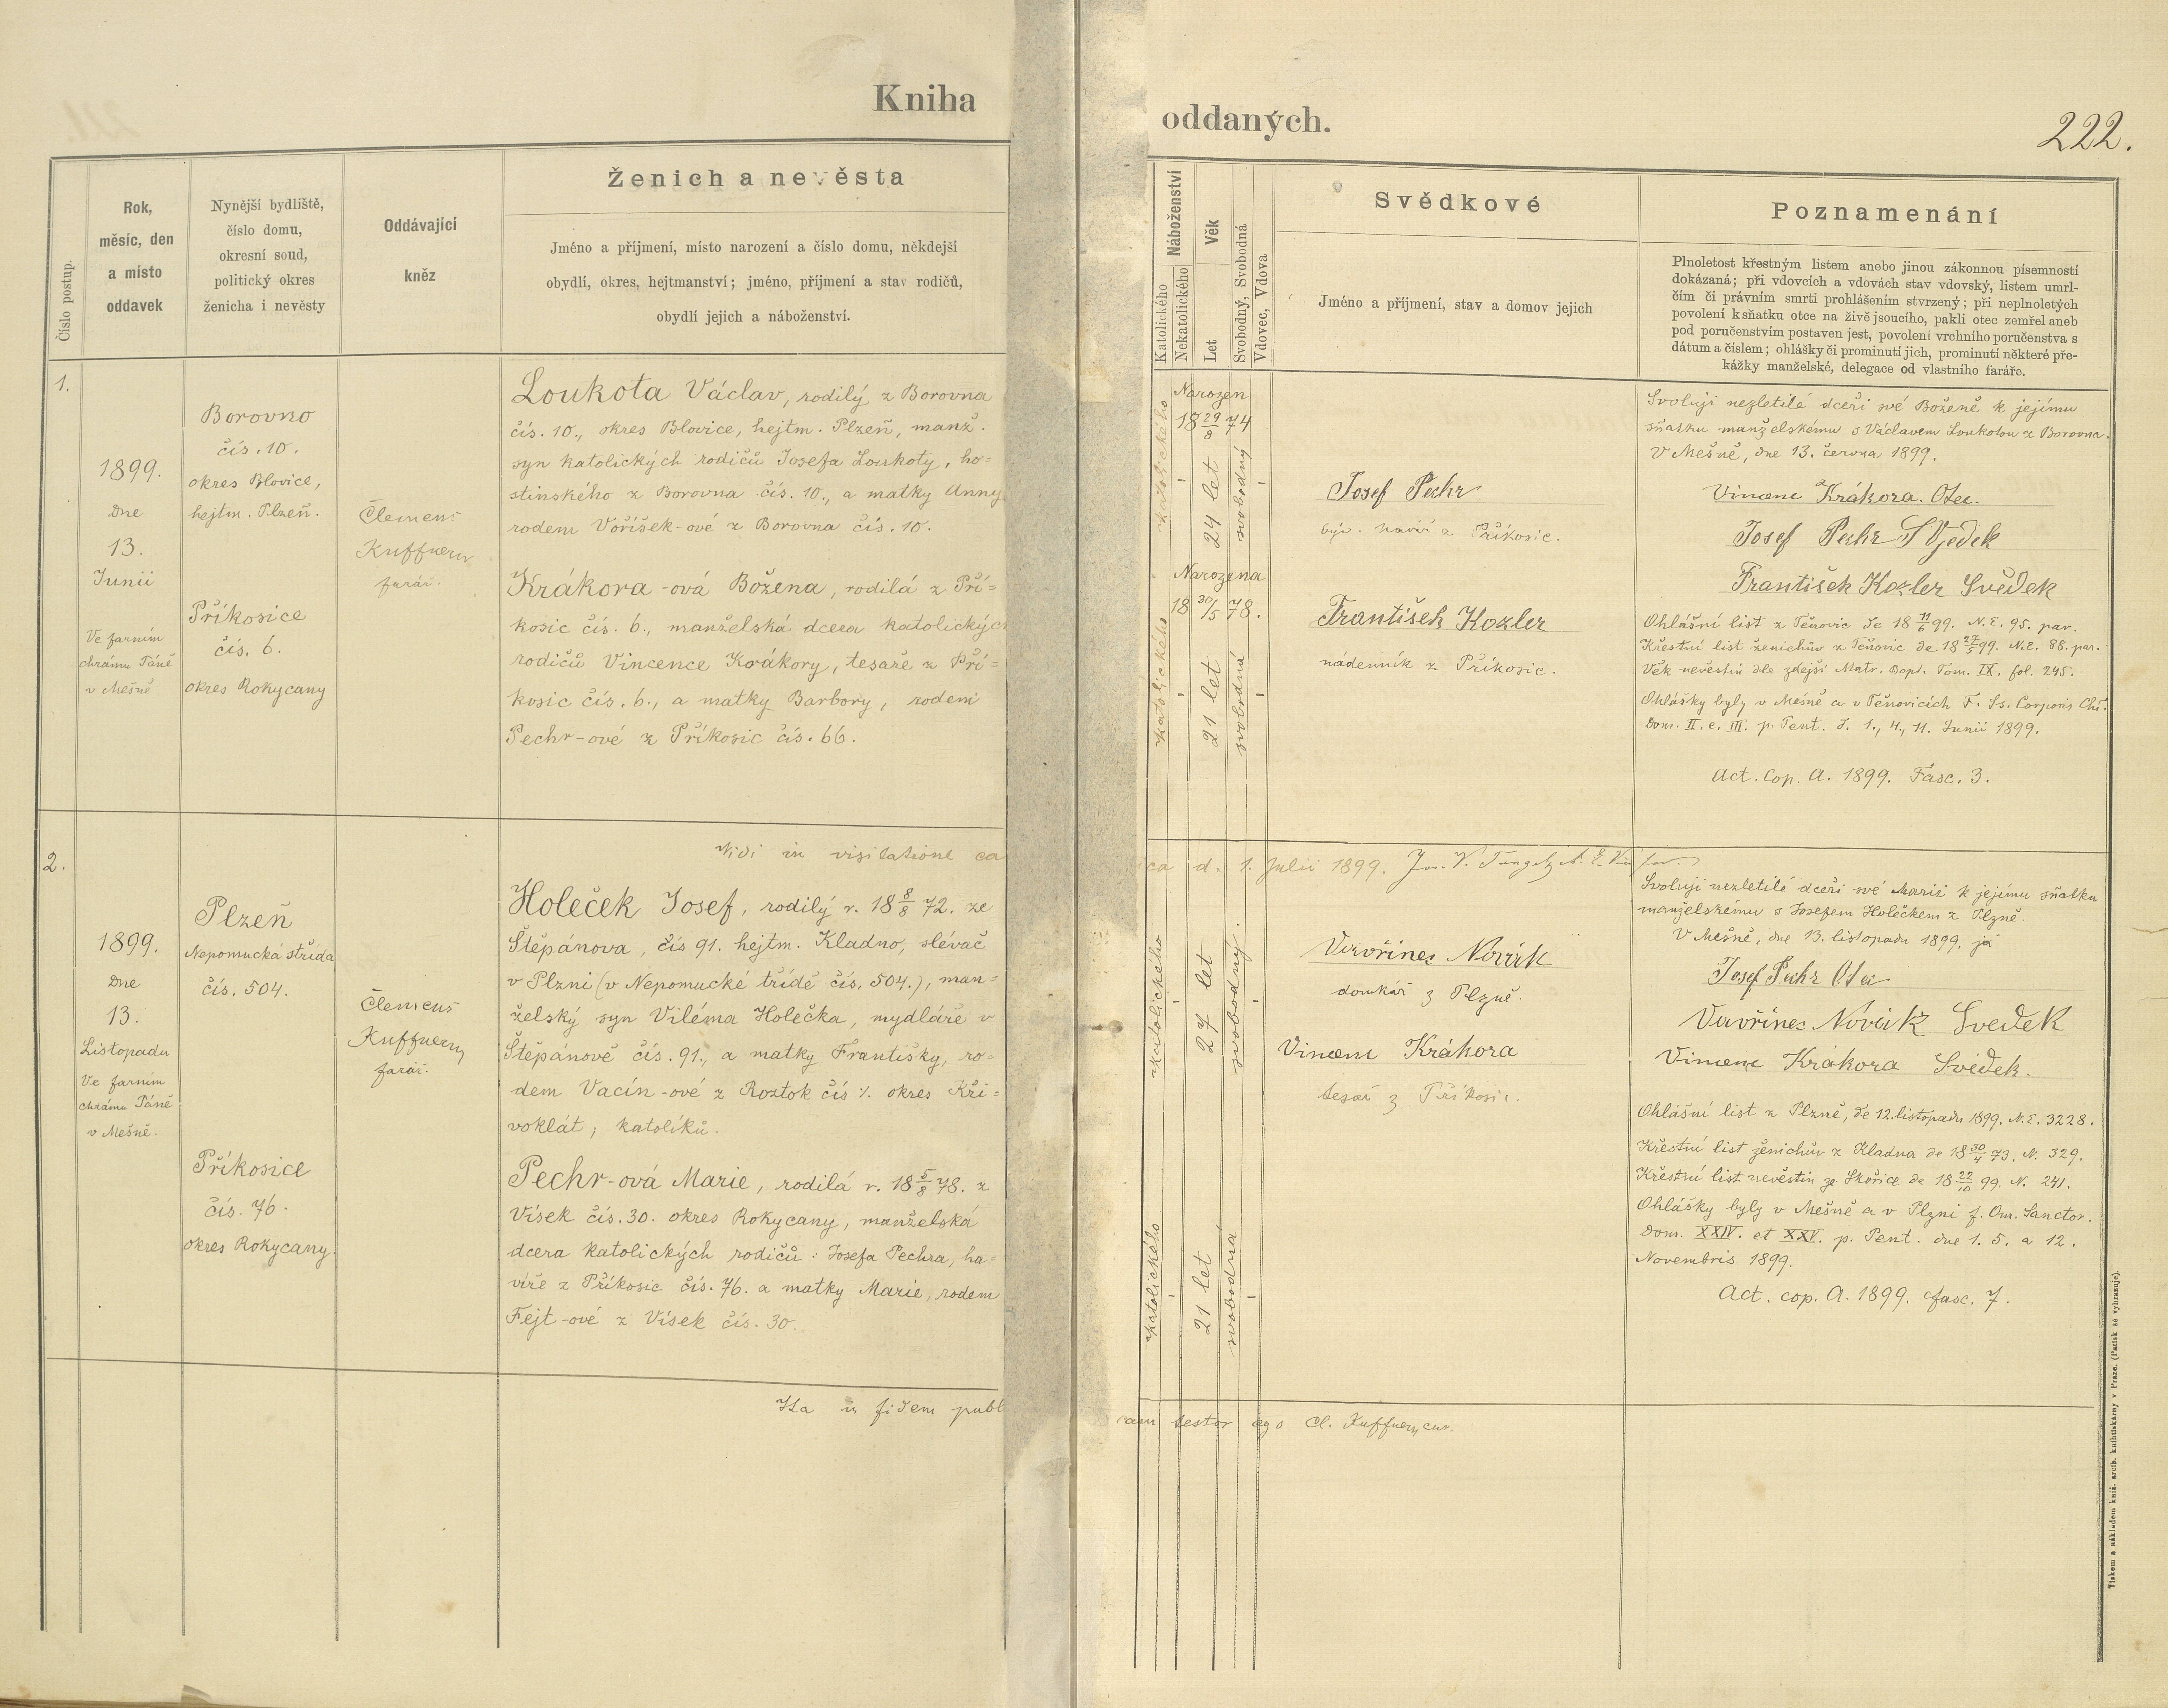 Kniha
oddaných.
222.
Číslo postup.
Rok,
měsíc, den
a místo
oddavek
Nynější bydliště,
číslo domu,
okresní soud,
politický okres
ženicha i nevěsty
Oddávající
kněz
Ženich a nevěsta
Jméno a příjmení, místo narození a číslo domu, někdejší
obydlí, okres, hejtmanství; jméno, příjmení a stav rodičů,
obydlí jejich a náboženství.
Náboženství
Katolického
Nekatolického
Věk
Let
Svobodný, Svobodná
Vdovec, Vdova
Svědkové
Jméno a příjmení, stav a domov jejich
Poznamenání
Plnoletost křestným listem anebo jinou zákonnou písemností
dokázaná; při vdovcích a vdovách stav vdovský, listem umrl-
čím či právním smrti prohlášením stvrzený; při neplnoletých
povolení k sňatku otce na živě jsoucího, pakli otec zemřel aneb
pod poručenstvím postaven jest, povolení vrchního poručenstva s
dátum a číslem; ohlášky či prominutí jich, prominutí některé pře-
kážky manželské, delegace od vlastního faráře.
1.
1899.
Dne
13.
Junii
Ve farním
chrámu Páně
v Mešně
Borovno
čís. 10.
okres Blovice,
hejtm. Plzeň.
Příkosice
čís. 6.
okres Rokycany
Clemens
Kuffnery
farář.
Loukota Václav, rodilý z Borovna
čís. 10., okres Blovice, hejtm. Plzeň, manž.
syn katolických rodičů Josefa Loukoty, ho=
stinského z Borovna čís. 10., a matky Anny
rodem Voříšek-ové z Borovna čís. 10.
Krákora-ová Božena, rodilá z Pří=
kosic čís. 6., manželská dcera katolických
rodičů Vincence Krákory, tesaře z Pří=
kosic čís. 6., a matky Barbory, rodem
Pechr-ové z Příkosic čís. 66.
katolického
Narozen
18 29/8 74
24 let
svobodný
katolického
Narozena
18 30/5 78.
21 let
svobodná
Josef Pechr
býv. havíř z Příkosic.
František Kozler
nádenník z Příkosic.
Svoluji nezletilé dceři své Boženě k jejímu
sňatku manželskému s Václavem Loukotou z Borovna.
V Mešně, dne 13. června 1899.
Vincenc Krákora. Otec.
Josef Pechr Svjedek
František Kozler Svědek
Ohlášní list z Těnovic de 18 11/6 99. N.E. 95. par.
Křestní list ženichův z Těnovic de 18 27/5 99. N.E. 88. par.
Věk nevěstin dle zdejší Matr. Bapt. Tom. IX. fol. 245.
Ohlášky byly v Mešně a v Těnovicích F. Ss. Corporis Chi.
Dom. II. e. III. p. Pent. d. 1., 4., 11. Junii 1899.
Act. Cop. A. 1899. Fasc. 3.
Vidi in visitatione ca
ca d. 1. Julii 1899.
2.
1899.
Dne
13.
Listopadu
Ve farním
chrámu Páně
v Mešně.
Plzeň
Nepomucká střída
čís. 504.
Příkosice
čís. 76.
okres Rokycany.
Clemens
Kuffnery
farář.
Holeček Josef, rodilý r. 18 8/8 72. ze
Štěpánova, čís 91. hejtm. Kladno, slévač
v Plzni (v Nepomucké třídě čís. 504.), man=
želský syn Viléma Holečka, mydláře v
Štěpánově čís. 91., a matky Františky, ro=
dem Vacín-ové z Roztok čís ⁒. okres Kři=
voklát; katolíků.
Pechr-ová Marie, rodilá r. 18 5/8 78. z
Vísek čís. 30. okres Rokycany, manželská
dcera katolických rodičů: Josefa Pechra, ha=
víře z Příkosic čís. 76. a matky Marie, rodem
Fejt-ové z Vísek čís. 30.
katolického
27 let
svobodný.
katolického
21 let
svobodná
Vavřinec Novák
domkář z Plzně.
Vincenc Krákora
tesař z Příkosic.
Svoluji nezletilé dceři své Marii k jejímu sňatku
manželskému s Josefem Holečkem z Plzně.
V Mešně, dne 13. listopadu 1899. já
Josef Pechr Otec
Vavřinec Novák Svedek
Vincenc Krákora Svědek.
Ohlášní list z Plzně, de 12. listopadu 1899. N.E. 3228.
Křestní list ženichův z Kladna de 18 30/4 73. N. 329.
Křestní list nevěstin ze Skořice de 18 22/10 99. N. 241.
Ohlášky byly v Mešně a v Plzni f. Om. Sanctor.
Dom. XXIV. et XXV. p. Pent. dne 1. 5. a 12.
Novembris 1899.
Act. cop. A. 1899. fasc. 7.
Ita in fidem publ
cam testor ego Cl. Kuffnery cur.
Tiskem a nákladem kníž. arcib. knihtiskárny v Praze. (Patisk se vyhrazuje).